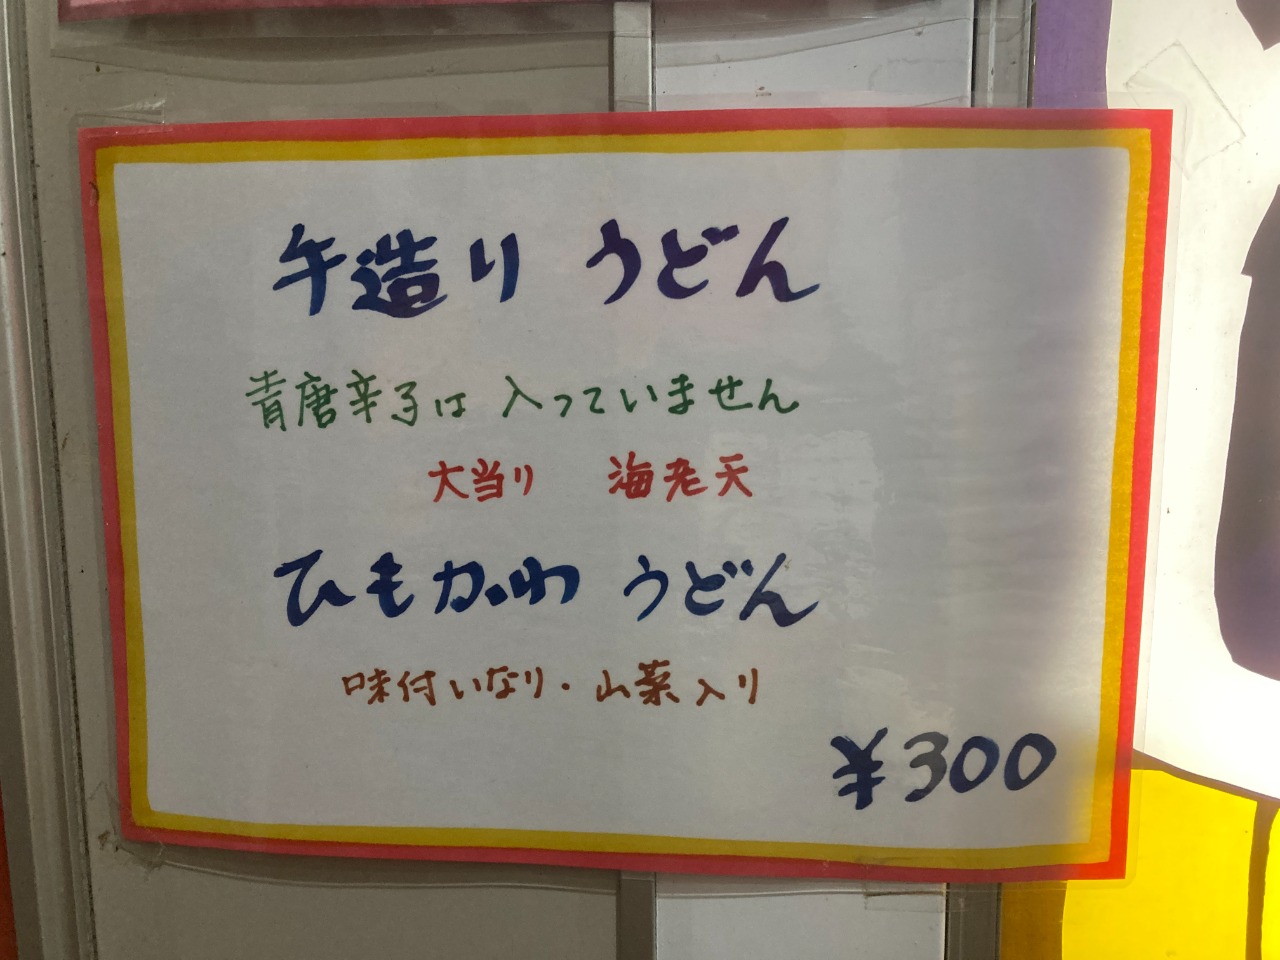 手造り うどん
青唐辛子は 入っていません
大当り 海老天
ひもかわ うどん
味付いなり・山菜入り
¥300